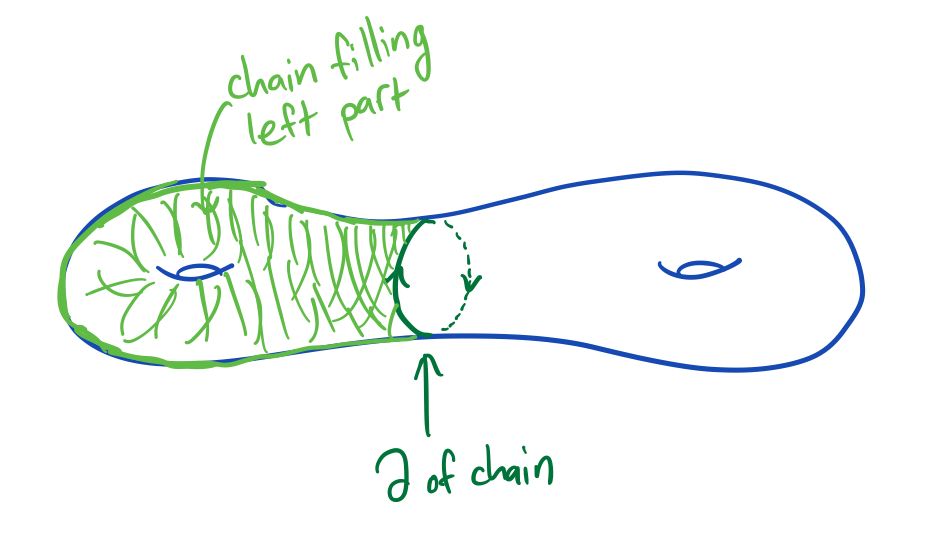 chain filling
left part
∂ of chain